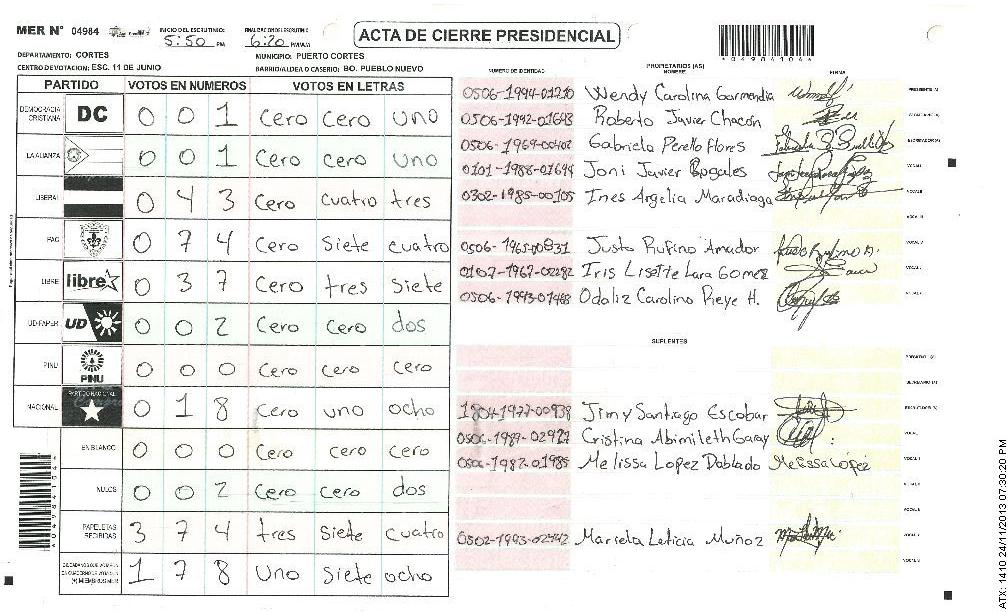 MER N° 04984
INICIO DEL ESCRUTINIO: 5:50 PM
FINALIZACION ESCRUTINIO: 6:20 PM/AM
ACTA DE CIERRE PRESIDENCIAL
*04984104*
DEPARTAMENTO: CORTES
MUNICIPIO: PUERTO CORTES
CENTRO DE VOTACION: ESC. 11 DE JUNIO
BARRIO/ALDEA O CASERIO: BO. PUEBLO NUEVO
PARTIDO VOTOS EN NUMEROS VOTOS EN LETRAS
DEMOCRACIA CRISTIANA DC 0 0 1 Cero Cero uno
LA ALIANZA 0 0 1 Cero Cero uno
LIBERAL 0 4 3 Cero Cuatro tres
PAC 0 7 4 Cero Siete cuatro
LIBRE libre 0 3 7 Cero tres Siete
UD-FAPER UD 0 0 2 Cero Cero dos
PINU PINU 0 0 0 Cero Cero Cero
NACIONAL PARTIDO NACIONAL 0 1 8 Cero uno ocho
EN BLANCO 0 0 0 Cero cero cero
NULOS 0 0 2 Cero cero dos
PAPELETAS RECIBIDAS 3 7 4 tres Siete cuatro
(+) MIEMBROS MER 1 7 8 Uno Siete ocho
NUMERO DE IDENTIDAD
PROPIETARIOS (AS)
NOMBRE
FIRMA
0506-1994-01210 Wendy Carolina Garmendia PRESIDENTE (A)
0506-1992-01643 Roberto Javier Chacón SECRETARIO (A)
Gabriela Perello Flores ESCRUTADOR (A)
0101-1988-01694 Joni Javier VOCAL I
0302-1985-00105 Ines Argelia Maradiaga VOCAL II
VOCAL III
0506-1965-00831 Justo Rufino Amador
0107-1967-02292 Iris Lisette Lara Gomez
0506-1993-01468 Odaliz Carolina
SUPLENTES
PRESIDENTE (A)
SECRETARIO (A)
1804-1977-00938 Jimy Santiago Escobar ESCRUTADOR (A)
0506-1989-02927 Cristina Abimileth Garay
0506-1987-01985 Melissa Lopez Doblado Melissa López
0502-1993-02442 Mariela Leticia Muñoz
ATX: 1410 24/11/2013 07:30:20 PM